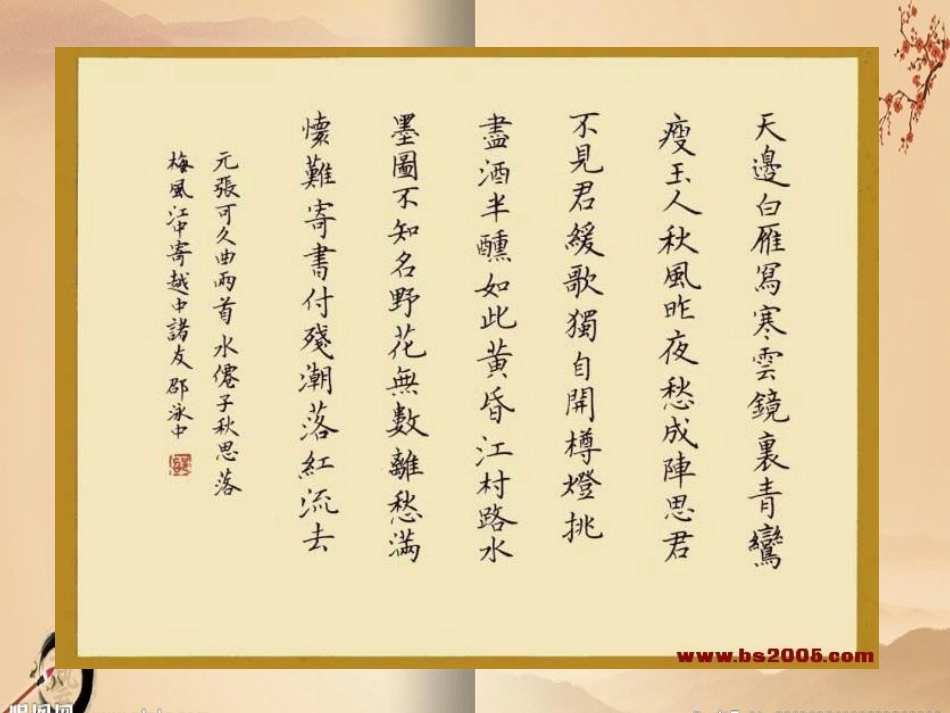 天邊白雁寫寒雲鏡裏青鸞
瘦玉人秋風昨夜愁成陣思君
不見君緩歌獨自開樽燈挑
盡酒半醺如此黃昏江村路水
墨圖不知名野花無數離愁滿
懷難寄書付殘潮落紅流去
元張可久曲兩首水僊子秋思落
梅風江中寄越中諸友邵泳中
www.bs2005.com